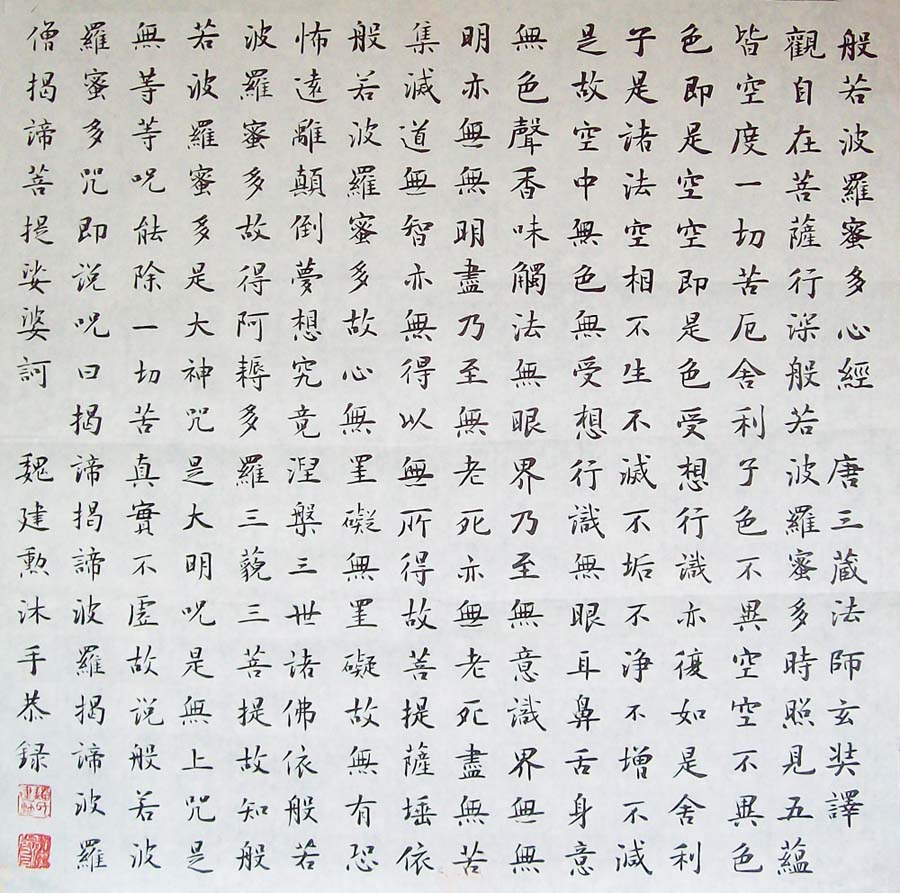 般若波羅蜜多心經 唐三藏法師玄奘譯
觀自在菩薩行深般若波羅蜜多時照見五蘊
皆空度一切苦厄舍利子色不異空空不異色
色即是空空即是色受想行識亦復如是舍利
子是諸法空相不生不滅不垢不淨不增不減
是故空中無色無受想行識無眼耳鼻舌身意
無色聲香味觸法無眼界乃至無意識界無無
明亦無無明盡乃至無老死亦無老死盡無苦
集滅道無智亦無得以無所得故菩提薩埵依
般若波羅蜜多故心無罣礙無罣礙故無有恐
怖遠離顛倒夢想究竟涅槃三世諸佛依般若
波羅蜜多故得阿耨多羅三藐三菩提故知般
若波羅蜜多是大神咒是大明咒是無上咒是
無等等呪能除一切苦真實不虛故説般若波
羅蜜多咒即説呪曰揭諦揭諦波羅揭諦波羅
僧揭諦菩提娑婆訶 魏建勲沐手恭録